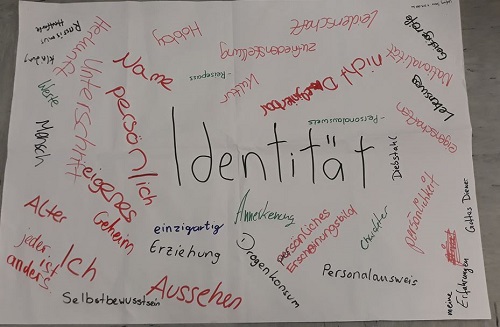 Identität
Rassismus
Kleidung
Werte
Mensch
Herkunft
Unterschrift
Name
persönlich
Hobby
Leidenschaft
zufriedenstellung
-Reisepass
Kultur
nicht
Nationalität
Lebensweg
eigenschaften
-Personalausweis
Diebstahl
eigenes
Geheim
Alter
jeder ist
anders
Ich
Selbstbewusstsein
einzigartig
Erziehung
Aussehen
Anerkennung
Drogenkonsum
persönliches
Erscheinungsbild
Charakter
Personalausweis
persönlichkeit
Gottes Diener
meine
Erfahrungen